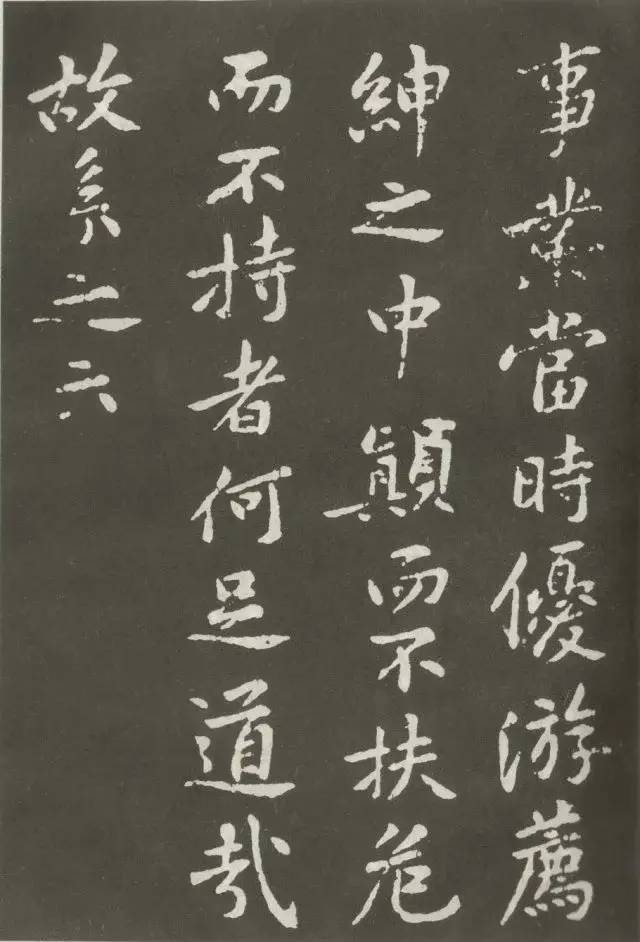 事業當時優游薦
紳之中顛而不扶危
而不持者何足道哉
故系之六